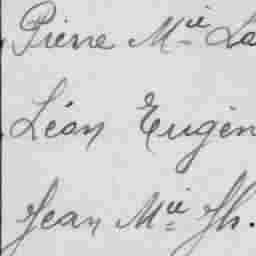 Pierre Mie La
Léon Eugèn
Jean Mie Jh.